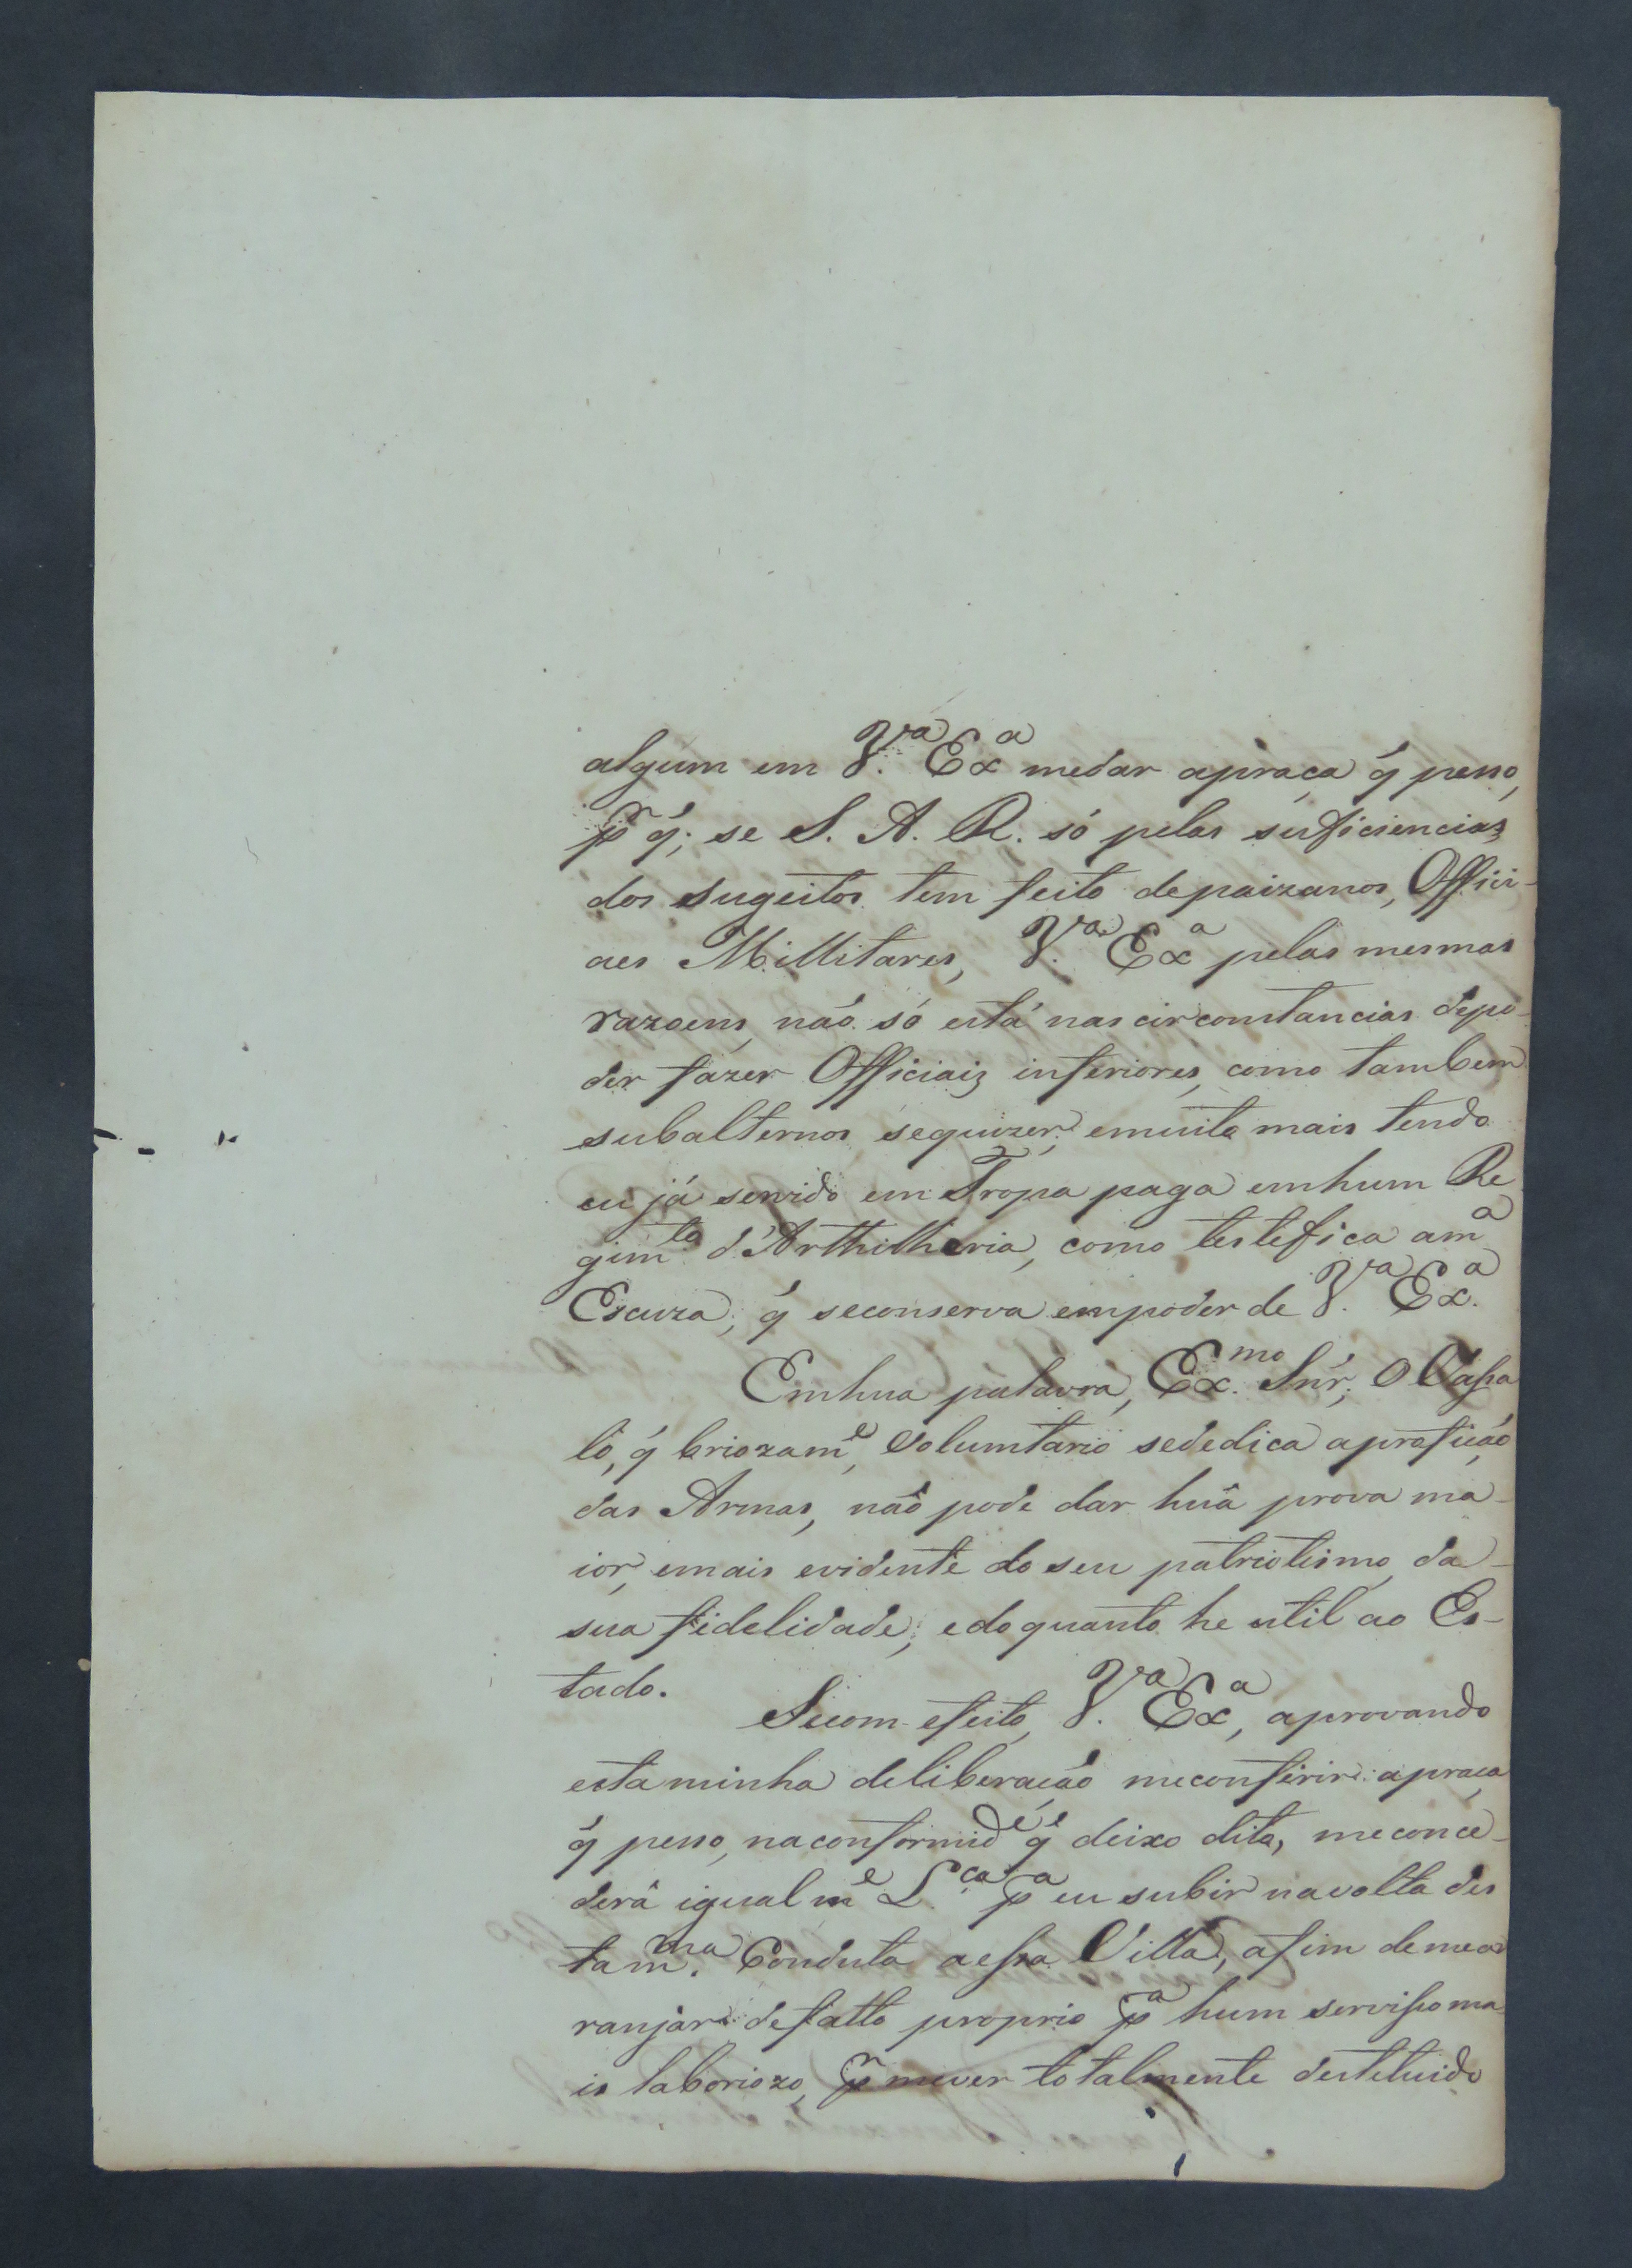 algum em V.ª Ex.ª medar apraça q́ pesso,
p.r q́; se S. A. R. só pelas suficiencias
dos sugeitos tem feito depaizanos, Offici-
aes Millitares, V.ª Ex.ª pelas mesmas
razoens, não só está nas circonstancias depo-
der fazer Officiaiz inferiores, como tambem
subalternos, sequizer; emuito mais tendo
eu já servido em Tropa paga emhum Re
gim.to d'Arthilheria, como testefica am.ª
Escuza; q́ seconserva empoder de V.ª Ex.ª
Emhua palavra, Ex.mo Snr̃; O Vassa
lo, q́ briozam.e, Volumtario sededica aprofição
das Armas, não pode dar huã prova ma-
ior, emais evidente do seu patriotismo, da-
sua fidelidade; edoquanto he util ao Es-
tado.
Secom efeito, V.ª Ex.ª, aprovando
esta minha deliberação meconferir: apraça
q́ pesso, naconformid.e q́ deixo dito, meconce-
derá igualm.e L.ça p.ª eu subir navolta des
tam.ma Conduta aessa Villa, afim demear
ranjar: defatto proprio p.ª hum servisso ma
is laboriozo, p.r mever totalmente destetuido